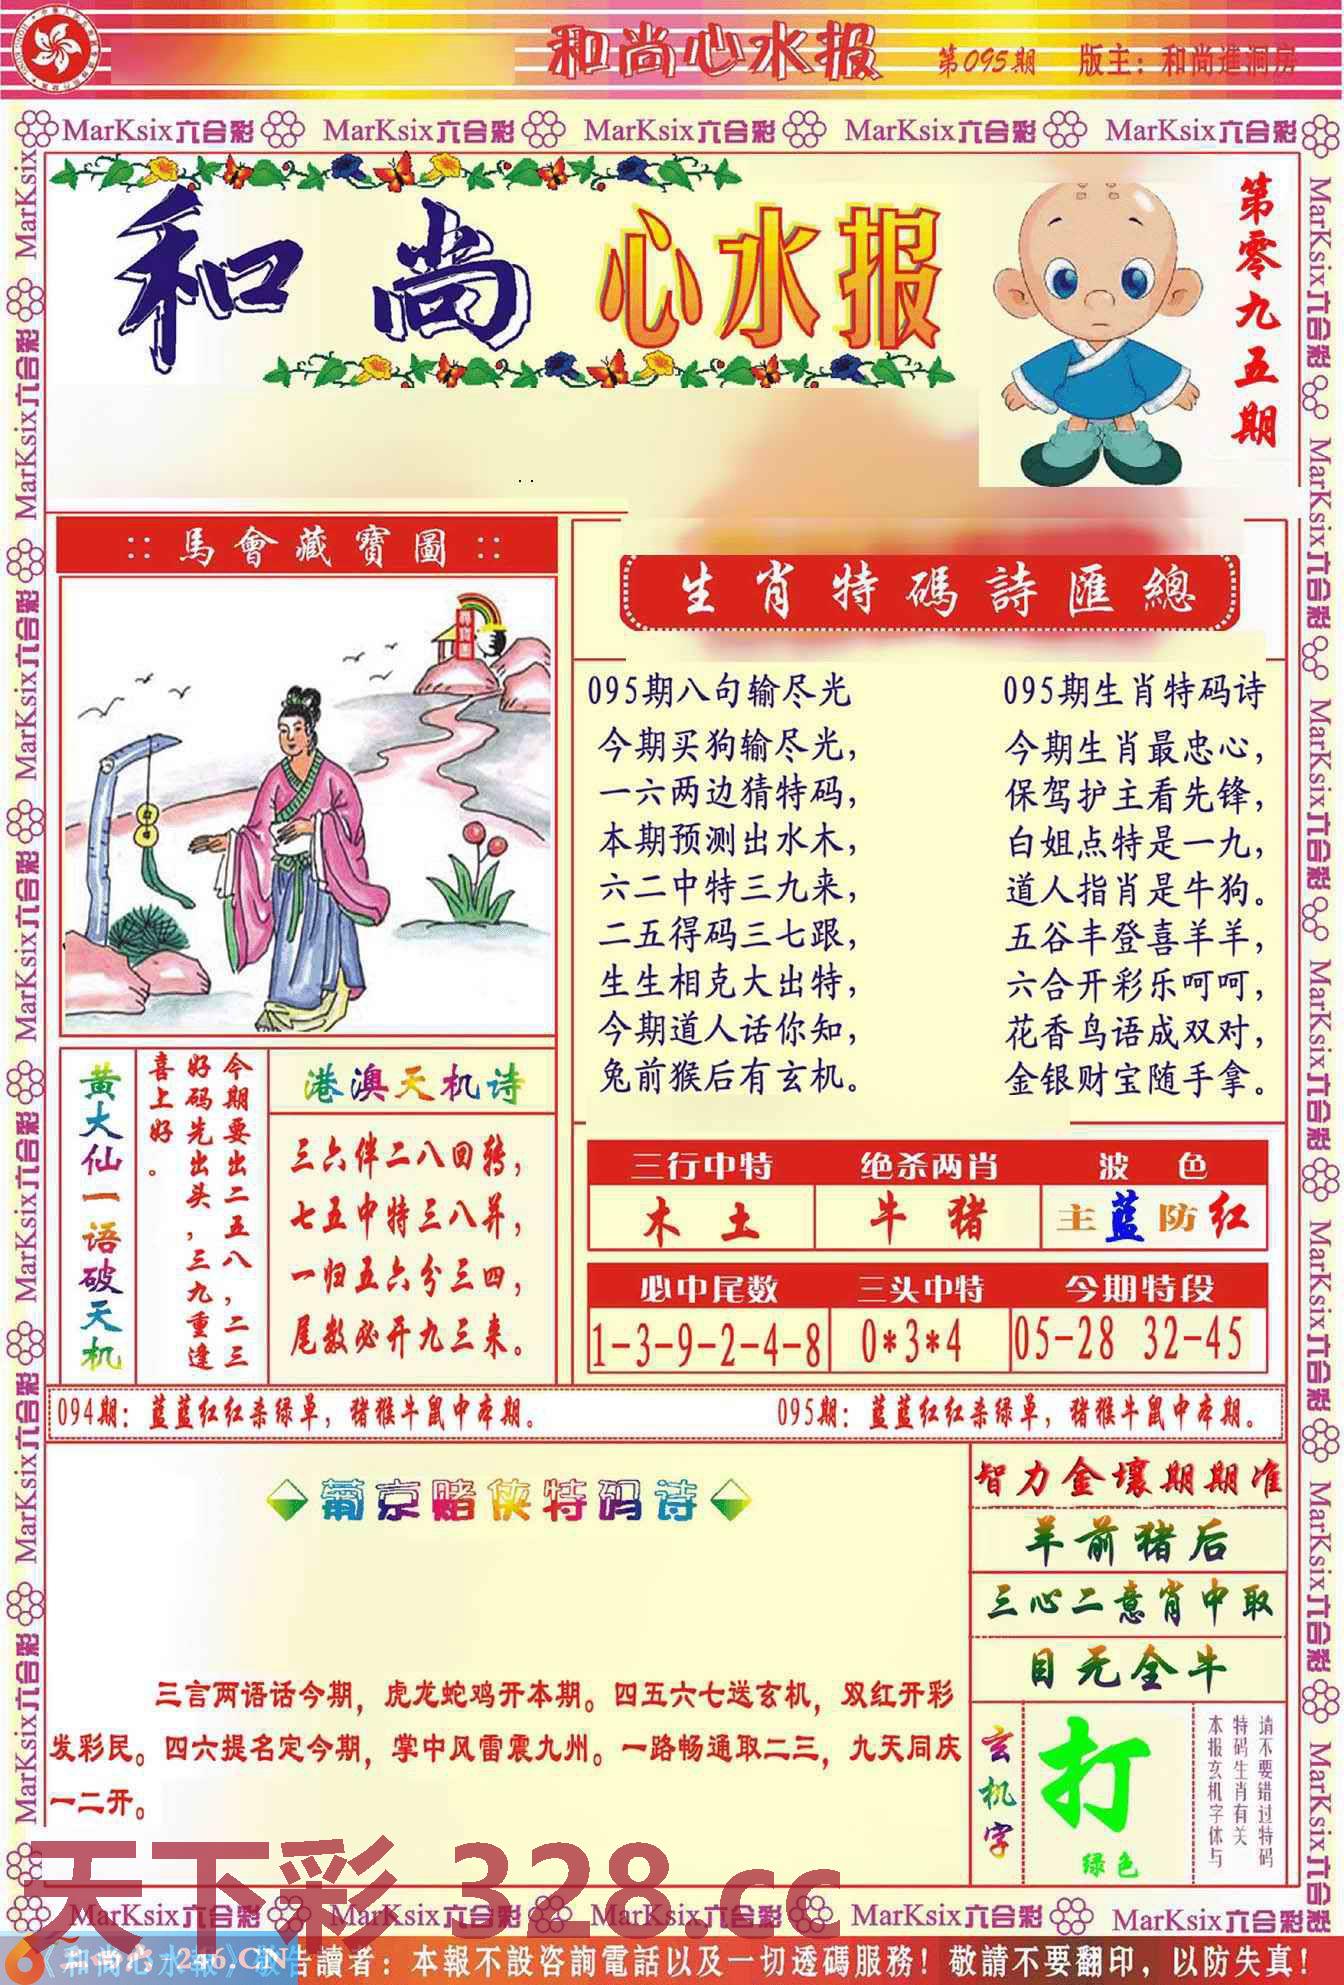 和尚心水报 第095期 版主：和尚進洞房
MarKsix六合彩 MarKsix六合彩 MarKsix六合彩 MarKsix六合彩 MarKsix六合彩
和尚心水报
第零九五期
::馬會藏寶圖::
生肖特碼詩匯總
095期八句输尽光
今期买狗输尽光，
一六两边猜特码，
本期预测出水木，
六二中特三九来，
二五得码三七跟，
生生相克大出特，
今期道人话你知，
兔前猴后有玄机。
095期生肖特码诗
今期生肖最忠心，
保驾护主看先锋，
白姐点特是一九，
道人指肖是牛狗。
五谷丰登喜羊羊，
六合开彩乐呵呵，
花香鸟语成双对，
金银财宝随手拿。
黄大仙一语破天机
今期要出二五八，二三
好码先出头，三九重逢
喜上好。
港澳天机诗
三六伴二八回转，
七五中特三八并，
一归五六分三四，
尾数必开九三来。
三行中特 绝杀两肖 波色
木土 牛猪 主蓝防红
必中尾数 三头中特 今期特段
1-3-9-2-4-8 0*3*4 05-28 32-45
094期：蓝蓝红红杀绿单，猪猴牛鼠中本期。 095期：蓝蓝红红杀绿单，猪猴牛鼠中本期。
葡京赌侠特码诗
三言两语话今期，虎龙蛇鸡开本期。四五六七送玄机，双红开彩
发彩民。四六提名定今期，掌中风雷震九州。一路畅通取二三，九天同庆
一二开。
智力金壤期期准
羊前猪后
三心二意肖中取
目无全牛
玄机字
打
绿色
请不要错过特码
特码生肖有关
本报玄机字体与
天下彩 328.cc
MarKsix六合彩 MarKsix六合彩 MarKsix六合彩 MarKsix六合彩 MarKsix六合彩
《和尚心水报》敬告讀者：本報不設咨詢電話以及一切透碼服務！敬請不要翻印，以防失真！
246.CN